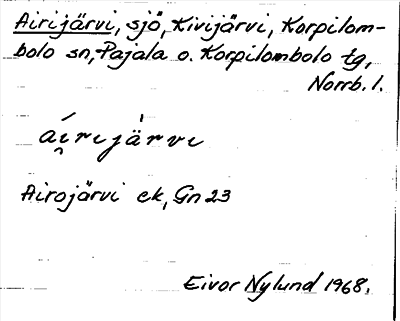 Airijärvi, sjö, Kivijärvi, Korpilom-
bolo sn, Pajala o. Korpilombolo tg,
Norrb. l.
ái̯rijä̀rvi
Airojärvi ek, Gn 23
Eivor Nylund 1968.